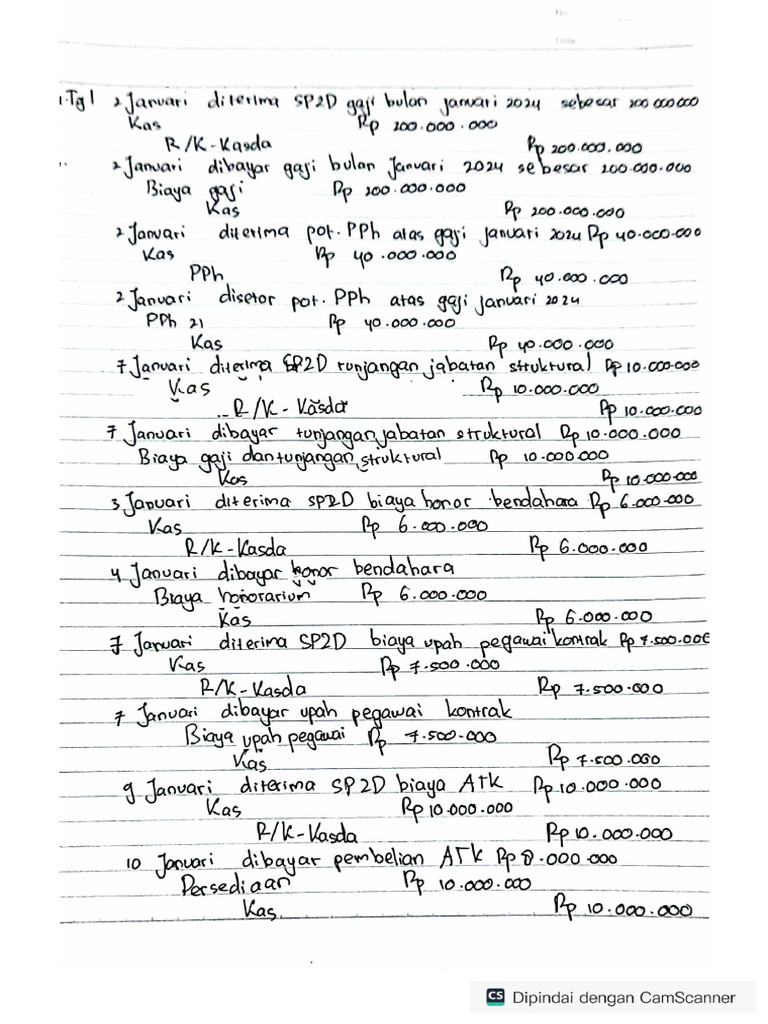 No
Date
1. Tgl 2 Januari diterima SP2D gaji bulan januari 2024 sebesar 200 000 000
Kas Rp 200.000.000
R/K-Kasda Rp 200.000.000
2 Januari dibayar gaji bulan Januari 2024 sebesar 200.000.000
Biaya gaji Rp 200.000.000
Kas Rp 200.000.000
2 Januari diterima pot. PPh atas gaji januari 2024 Rp 40.000.000
Kas Rp 40.000.000
PPh Rp 40.000.000
2 Januari disetor pot. PPh atas gaji januari 2024
PPh 21 Rp 40.000.000
Kas Rp 40.000.000
7 Januari diterima SP2D tunjangan jabatan struktural Rp 10.000.000
Kas Rp 10.000.000
R/K - Kasda Rp 10.000.000
7 Januari dibayar tunjangan jabatan struktural Rp 10.000.000
Biaya gaji dan tunjangan struktural Rp 10.000.000
Kas Rp 10.000.000
3 Januari diterima SP2D biaya honor bendahara Rp 6.000.000
Kas Rp 6.000.000
R/K-Kasda Rp 6.000.000
4 Januari dibayar honor bendahara
Biaya honorarium Rp 6.000.000
Kas Rp 6.000.000
7 Januari diterima SP2D biaya upah pegawai kontrak Rp 7.500.000
Kas Rp 7.500.000
R/K-Kasda Rp 7.500.000
7 Januari dibayar upah pegawai kontrak
Biaya upah pegawai Rp 7.500.000
Kas Rp 7.500.000
9 Januari diterima SP2D biaya ATK Rp 10.000.000
Kas Rp 10.000.000
R/K-Kasda Rp 10.000.000
10 Januari dibayar pembelian ATK Rp .000.000
Persediaan Rp 10.000.000
Kas Rp 10.000.000
CS Dipindai dengan CamScanner